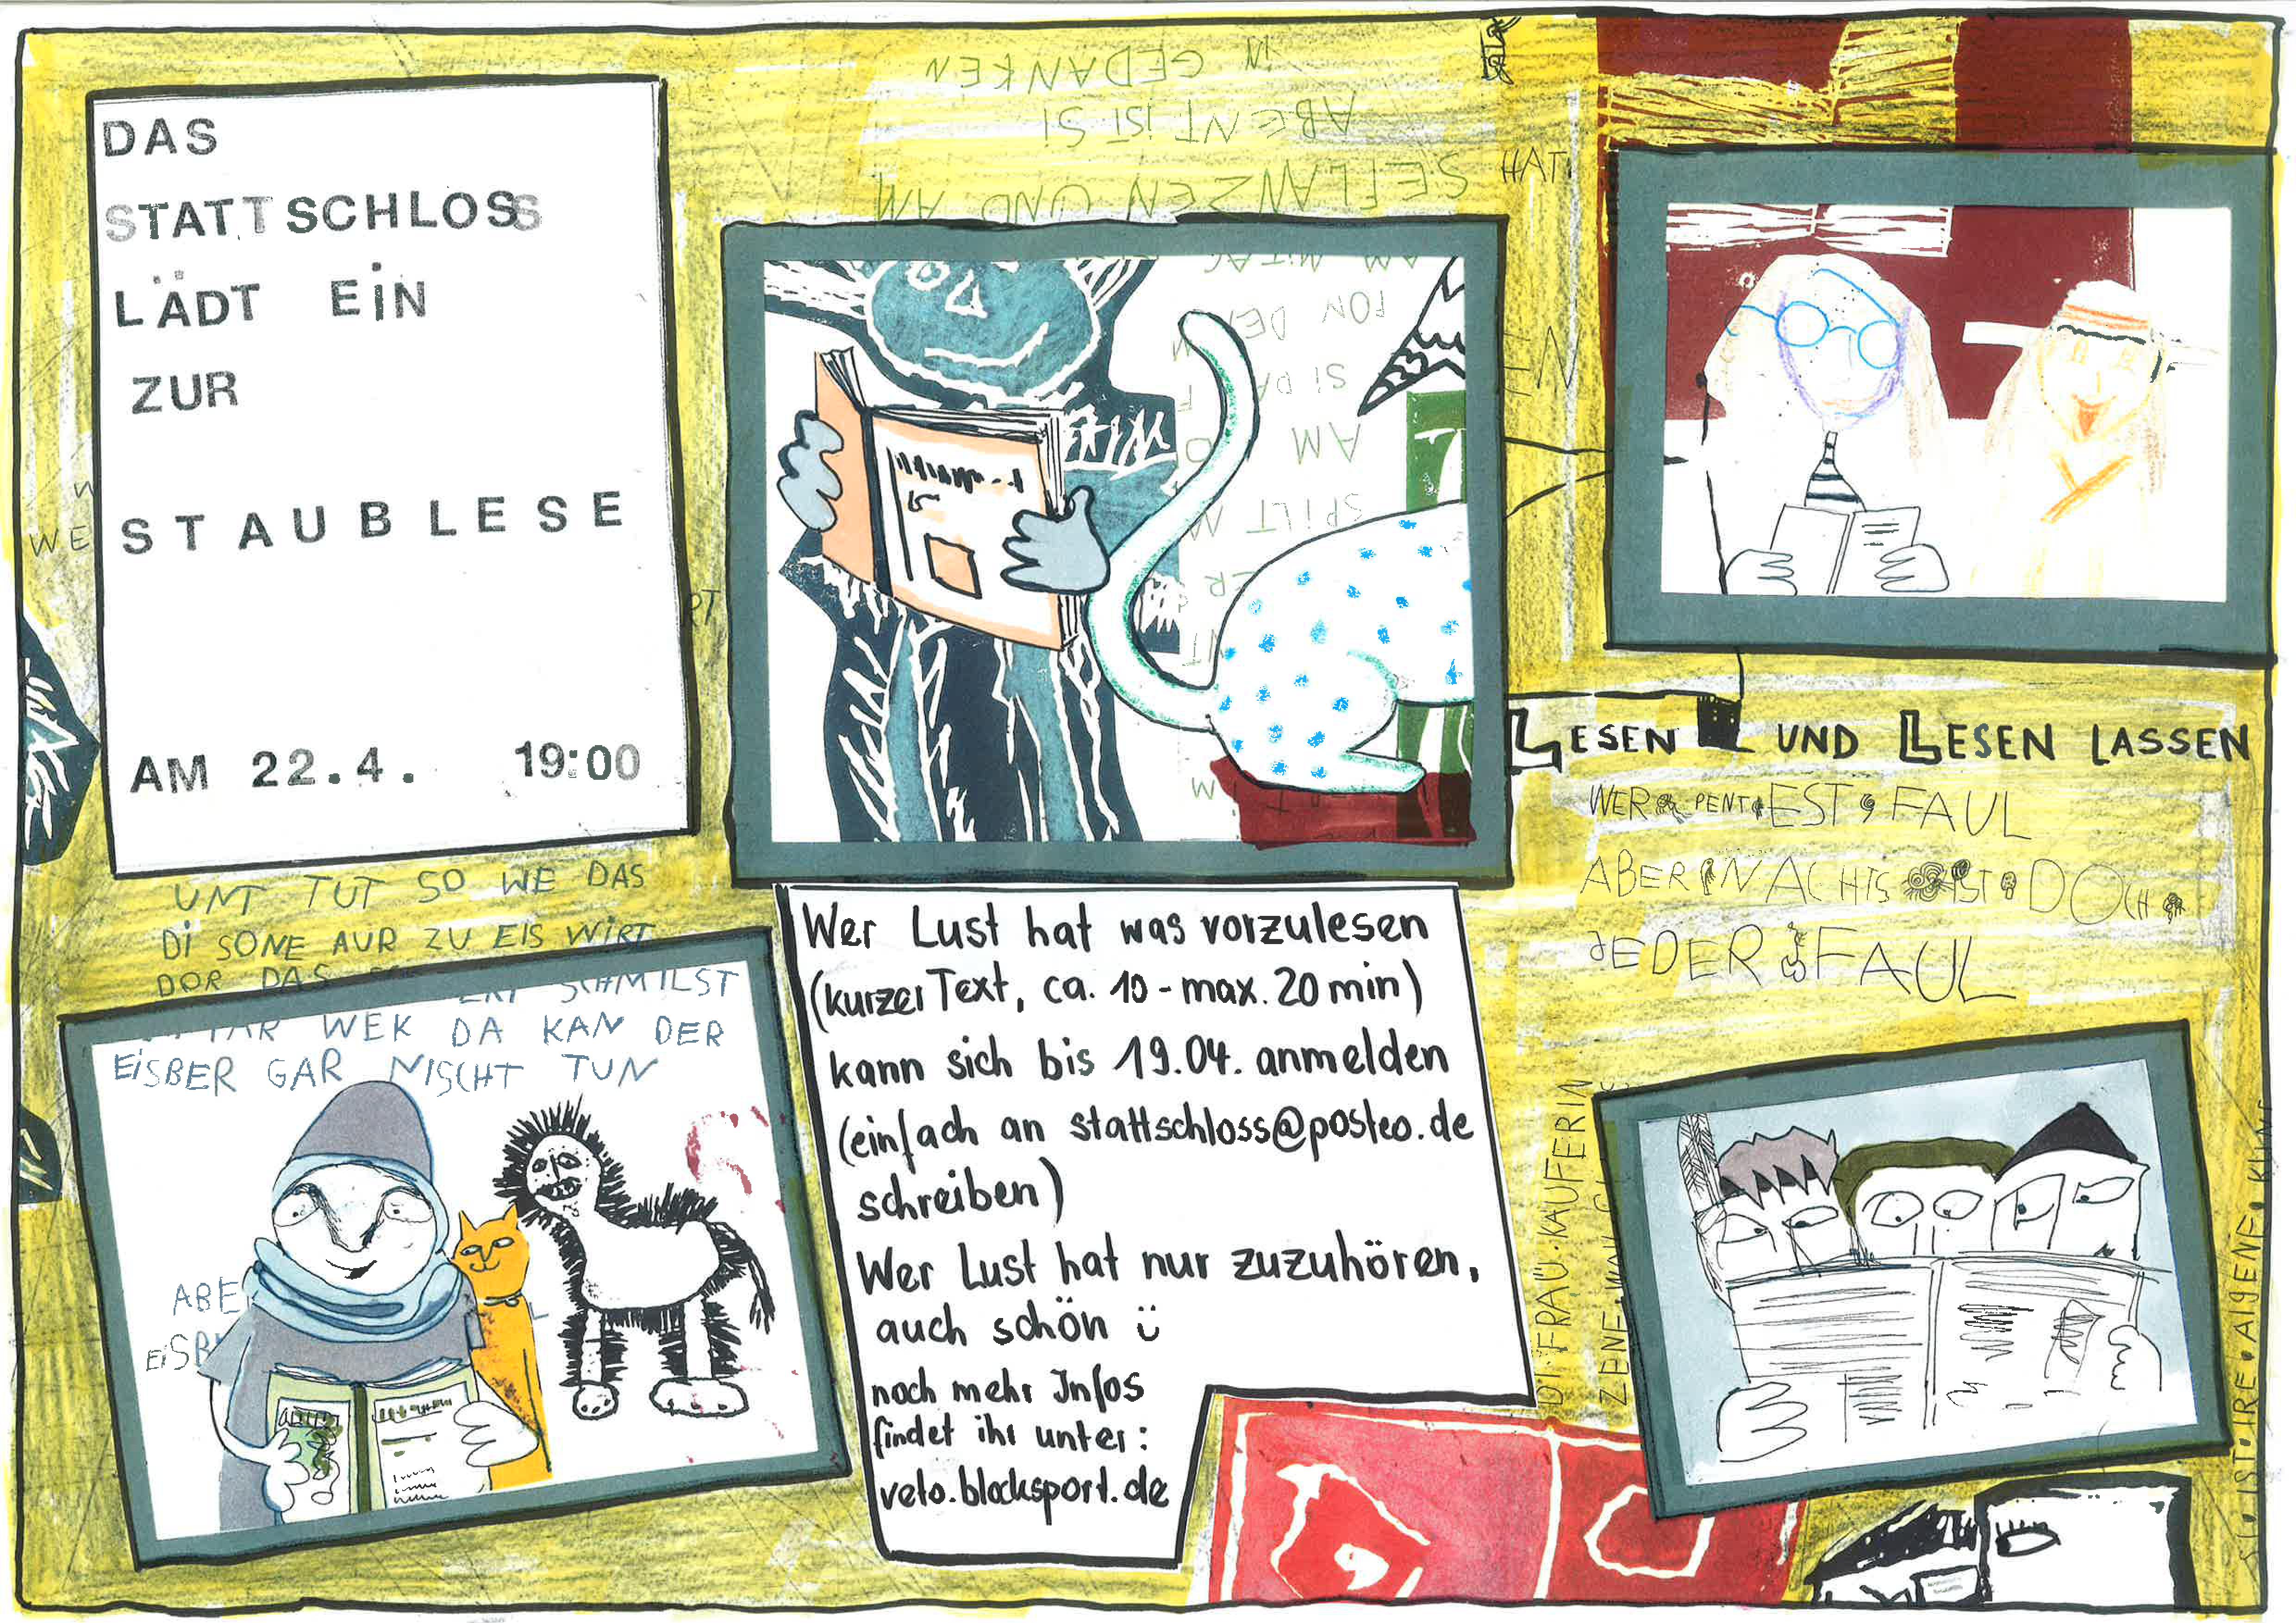 DAS
STATTSCHLOSS
LÄDT EIN
ZUR
STAUBLESE
AM 22.4. 19:00
IN
GEDANKEN
ABENT ISI SI
SEFLANZEN UND AM
HAT
AM MITAG
FON DER
SI DA
AM
SPILT
WE
LESEN UND LESEN LASSEN
WER PENT EST FAUL
ABER NACHTS IST DOCH
JEDER FAUL
UNT TUT SO WE DAS
DI SONE AUR ZU EIS WIRT
DOR DAS
SCHMILST
WEK DA KAN DER
EISBER GAR NISCHT TUN
ABE
EISB
Wer Lust hat was vorzulesen
(kurzer Text, ca. 10 - max. 20 min)
kann sich bis 19.04. anmelden
(einfach an stattschloss@posteo.de
schreiben)
Wer Lust hat nur zuzuhören,
auch schön ü
noch mehr Infos
findet ihr unter:
veto.blocksport.de
DI·FRAU·KAUFERIN
IST·IRE·AIGENE·KUN